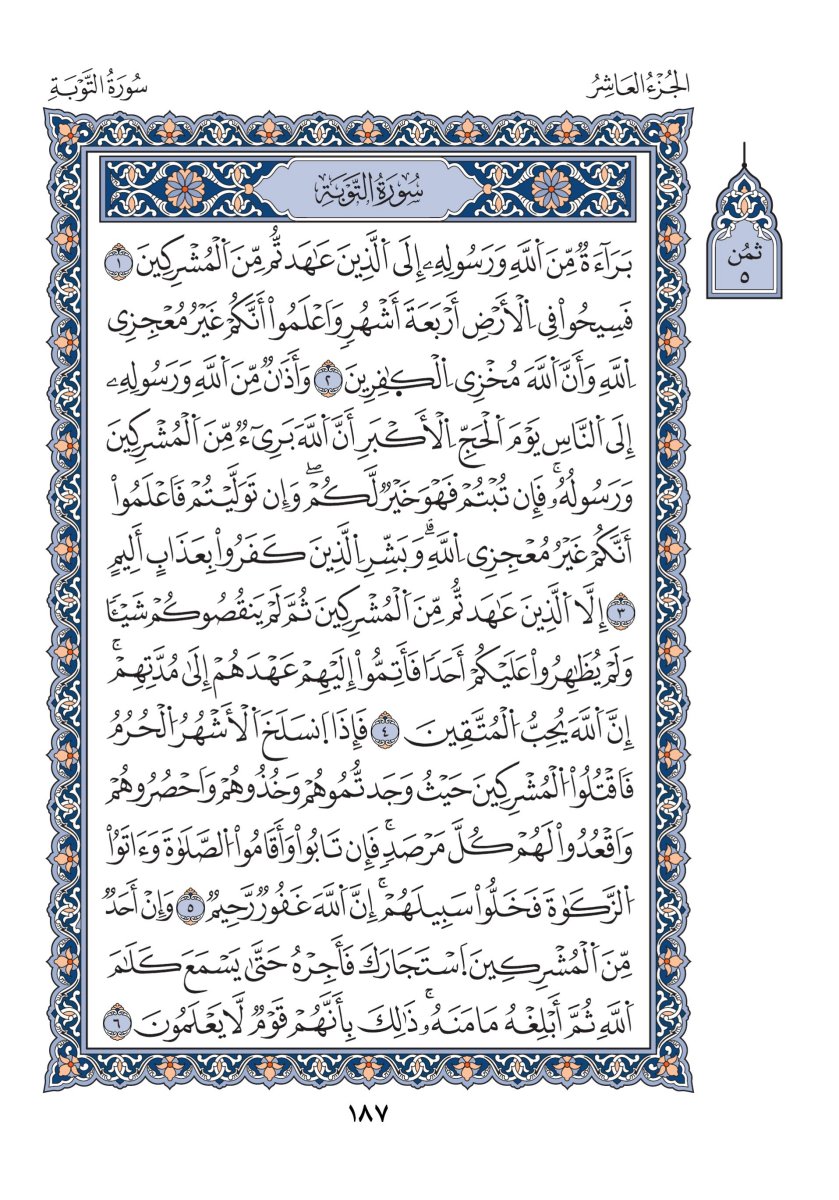 الجُزْءُ العَاشِرُ
سُورَةُ التَّوْبَةِ
سُورَةُ التَّوْبَةِ
ثمُن
٥
بَرَآءَةٌ مِّنَ اَ۬للَّهِ وَرَسُولِهِۦ إِلَى اَ۬لَّذِينَ عَٰهَدتُّم مِّنَ اَ۬لْمُشْرِكِينَ ١
فَسِيحُواْ فِي اِ۬لْأَرْضِ أَرْبَعَةَ أَشْهُرٍ وَاَعْلَمُواْ أَنَّكُمْ غَيْرُ مُعْجِزِي
اِ۬للَّهِ وَأَنَّ اَ۬للَّهَ مُخْزِي اِ۬لْكٰ۪فِرِينَ ٢ وَأَذَٰنٌ مِّنَ اَ۬للَّهِ وَرَسُولِهِۦ
إِلَى اَ۬لنَّاسِ يَوْمَ اَ۬لْحَجِّ اِ۬لْأَكْبَرِ أَنَّ اَ۬للَّهَ بَرِيٓءٌ مِّنَ اَ۬لْمُشْرِكِينَ
وَرَسُولُهُۥۚ فَإِن تُبْتُمْ فَهْوَ خَيْرٌ لَّكُمْۖ وَإِن تَوَلَّيْتُمْ فَاَعْلَمُواْ
أَنَّكُمْ غَيْرُ مُعْجِزِي اِ۬للَّهِۗ وَبَشِّرِ اِ۬لَّذِينَ كَفَرُواْ بِعَذَابٍ أَلِيمٍ
٣ إِلَّا اَ۬لَّذِينَ عَٰهَدتُّم مِّنَ اَ۬لْمُشْرِكِينَ ثُمَّ لَمْ يَنقُصُوكُمْ شَيْـًٔا
وَلَمْ يُظَٰهِرُواْ عَلَيْكُمْ أَحَدًا فَأَتِمُّواْ إِلَيْهِمْ عَهْدَهُمْ إِلَىٰ مُدَّتِهِمْۚ
إِنَّ اَ۬للَّهَ يُحِبُّ اُ۬لْمُتَّقِينَ ٤ فَإِذَا اَ۪نسَلَخَ اَ۬لْأَشْهُرُ اُ۬لْحُرُمُ
فَاَقْتُلُواْ اُ۬لْمُشْرِكِينَ حَيْثُ وَجَدتُّمُوهُمْ وَخُذُوهُمْ وَاَحْصُرُوهُمْ
وَاَقْعُدُواْ لَهُمْ كُلَّ مَرْصَدٍۚ فَإِن تَابُواْ وَأَقَامُواْ اُ۬لصَّلَوٰةَ وَءَاتَوُاْ
اُ۬لزَّكَوٰةَ فَخَلُّواْ سَبِيلَهُمْۚ إِنَّ اَ۬للَّهَ غَفُورٌ رَّحِيمٌ ٥ وَإِنْ أَحَدٌ
مِّنَ اَ۬لْمُشْرِكِينَ اَ۪سْتَجَارَكَ فَأَجِرْهُ حَتَّىٰ يَسْمَعَ كَلَٰمَ
اَ۬للَّهِ ثُمَّ أَبْلِغْهُ مَأْمَنَهُۥۚ ذَٰلِكَ بِأَنَّهُمْ قَوْمٌ لَّا يَعْلَمُونَ ٦
١٨٧